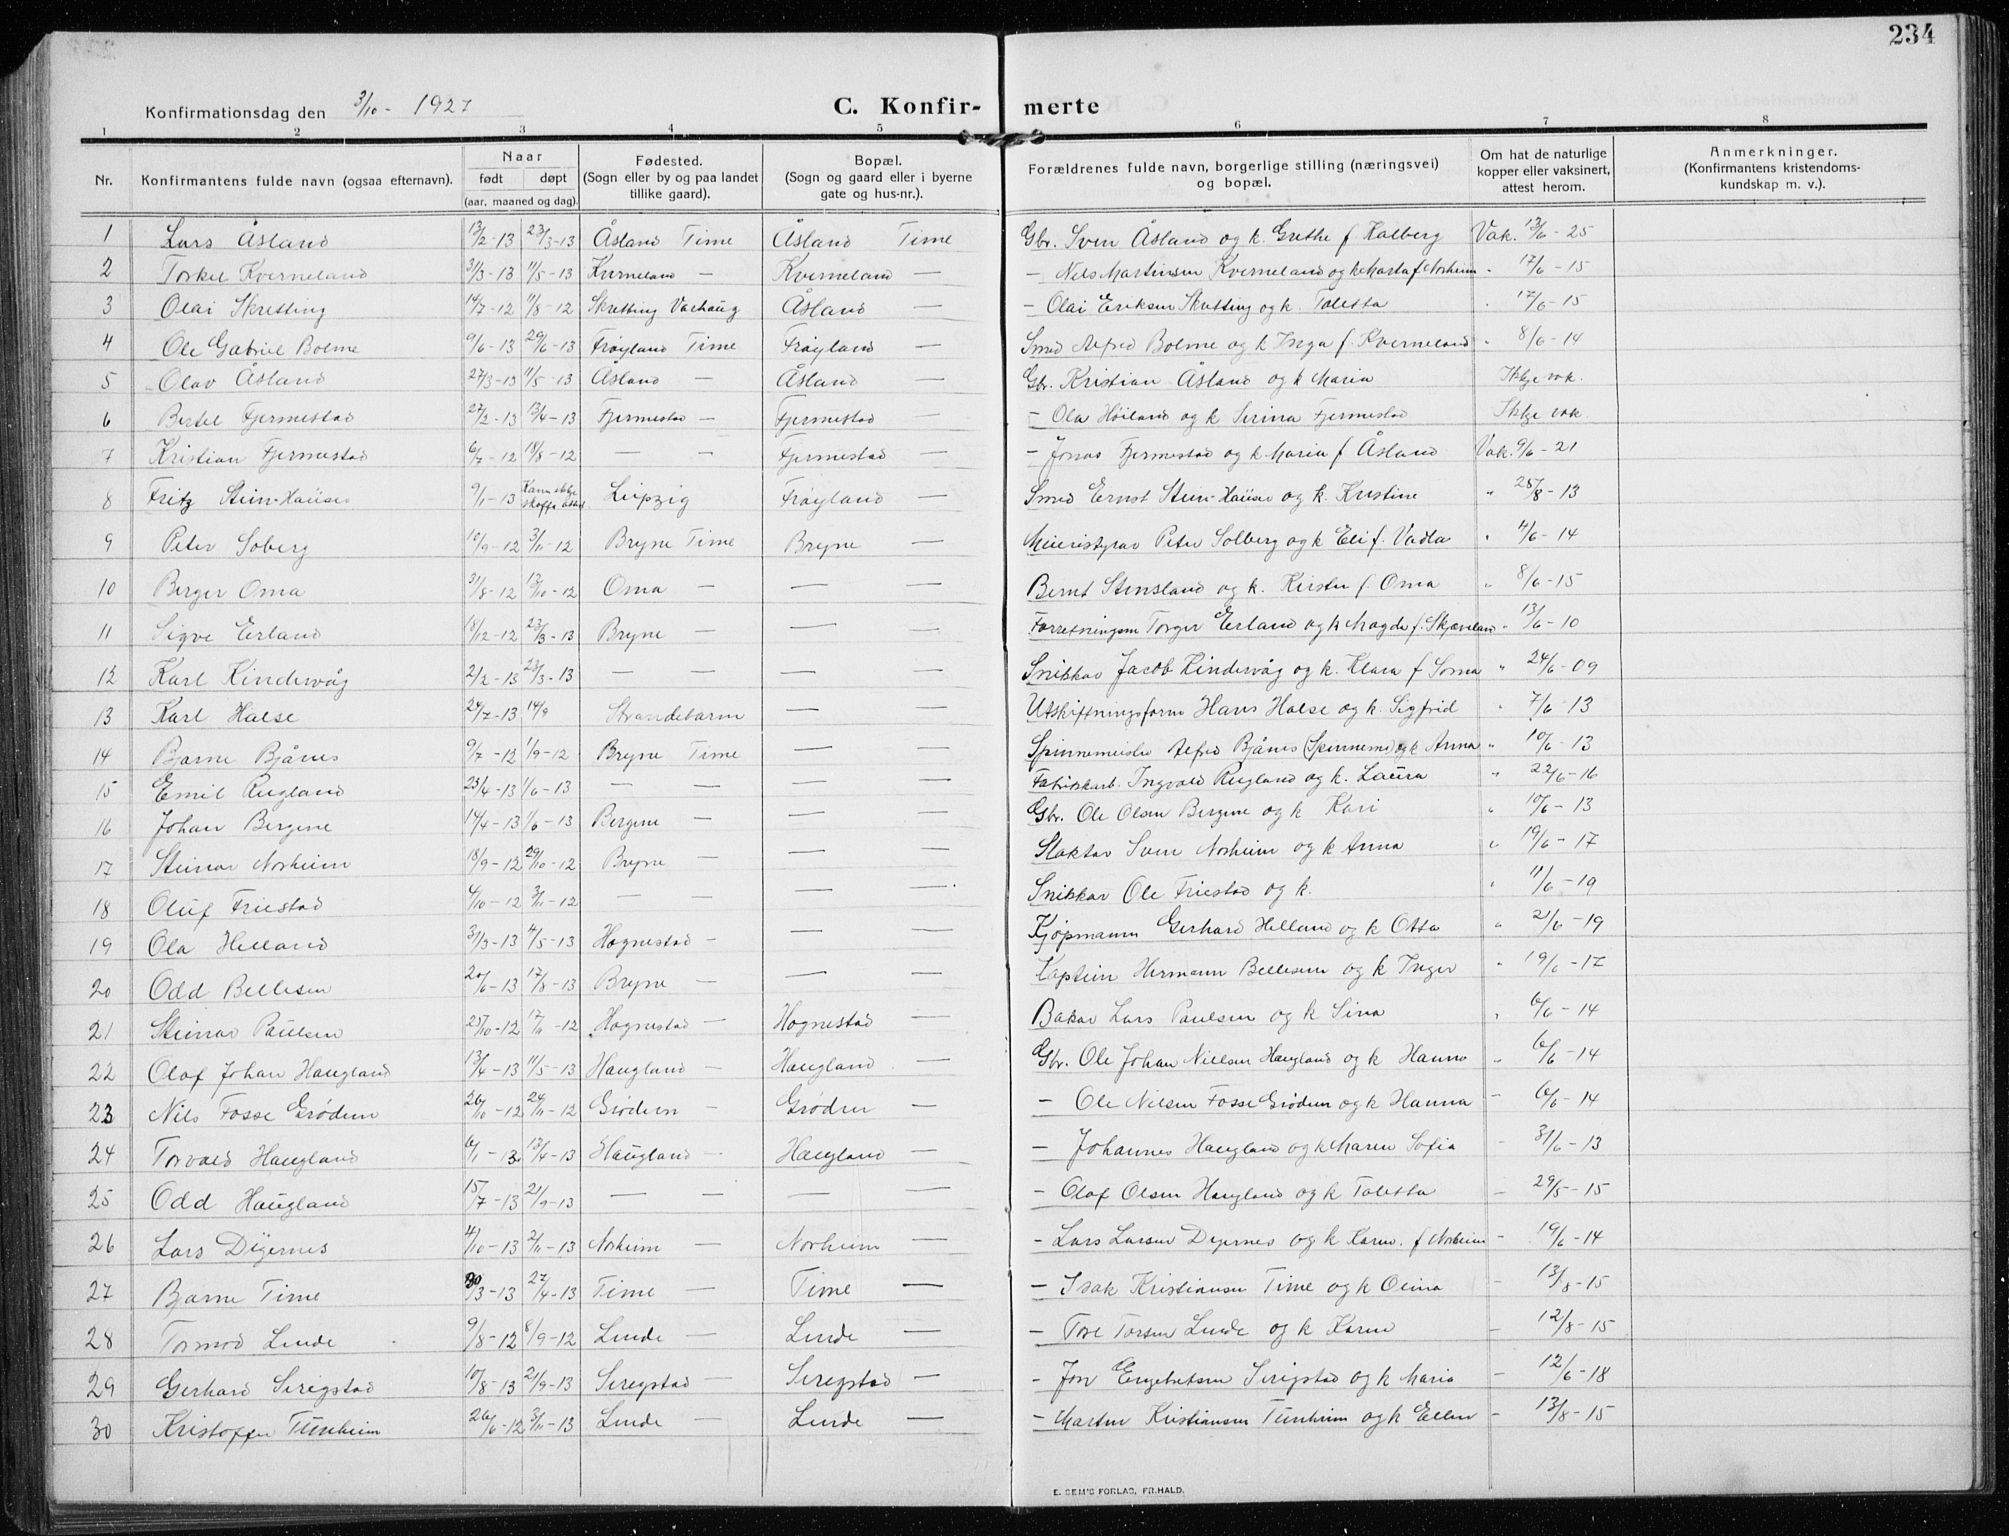 234
Konfirmationsdag den 3/10 - 1927
C. Konfir- merte
1 2 3 4 5 6 7 8
Nr. Konfirmantens fulde navn (ogsaa efternavn). Naar født døpt (aar, maaned og dag). Fødested. (Sogn eller by og paa landet tillike gaard). Bopæl. (Sogn og gaard eller i byerne gate og hus-nr.). Forældrenes fulde navn, borgerlige stilling (næringsvei) og bopæl. Om hat de naturlige kopper eller vaksinert, attest herom. Anmerkninger. (Konfirmantens kristendoms- kundskap m. v.).
1 Lars Åsland 13/2-13 23/3-13 Åsland Time Åsland Time Gbr. Sven Åsland og k. Grethe f Kalberg Vak. 13/6-25
2 Torkel Kverneland 31/3-13 11/5-13 Kverneland — Kverneland — — Nils Martinsen Kverneland og k Marta f Norheim " 17/6-15
3 Olai Skretting 14/7-12 11/8-12 Skretting Varhaug Åsland — — Olai Eriksen Skretting og k. Taletta " 17/6-15
4 Ole Gabriel Bolme 9/6-13 29/6-13 Frøyland Time Frøyland — Smed Alfred Bolme og k Inga f. Kverneland " 8/6-14
5 Olav Åsland 27/3-13 11/5-13 Åsland — Åsland — Gbr. Kristian Åsland og k Maria Ikkje vak.
6 Bertel Fjermestad 27/2-13 13/4-13 Fjermestad — Fjermestad — Ola Høiland og k Serina Fjermestad Ikkje vak.
7 Kristian Fjermestad 6/7-12 18/8-12 — — Fjermestad — — Jonas Fjermestad og k Maria f Åsland Vak. 9/6-21
8 Fritz Stein-Hauser 9/1-13 Kann ikkje skaffa attest Leipzig Frøyland — Smed Ernst Stein-Hauser og k. Kristine " 28/8-13
9 Peter Soberg 10/9-12 3/11-12 Bryne Time Bryne — Meieristyrar Peter Solberg og k Eli f. Vadla " 4/6-14
10 Berger Oma 31/8-12 13/10-12 Oma — — — Bernt Stensland og k. Kirsten f. Oma " 8/6-15
11 Sigve Erland 18/12-12 23/3-13 Bryne — — — Forretningsm Torger Erland og k Magda f. Skjæveland " 13/6-10
12 Karl Kindervåg 2/2-13 23/3-13 — — — — Snikkar Jacob Kindervåg og k. Klara f Soma " 24/6-09
13 Karl Halse 24/7-13 14/9 Strandebarm — — Utskiftningsform Hans Halse og k. Sigfrid " 7/6-13
14 Bjarne Bjånes 9/7-12 1/9-12 Bryne Time — — Spinnemeister Alfred Bjånes (Spinnem) og k Anna " 10/6-13
15 Emil Rugland 23/4-13 1/6-13 — — — — Fabrikkarb. Ingvald Rugland og k. Laura " 22/6-16
16 Johan Bergene 14/4-13 1/6-13 Bergene — — — Gbr. Ole Olsen Bergene og k Kari " 10/6-13
17 Steinar Norheim 18/9-12 29/10-12 Bryne — — Slaktar Sven Norheim og k Anna " 19/6-17
18 Oluf Friestad 6/10-12 3/11-12 — — — — Snikkar Ole Friestad og k. " 11/6-19
19 Ola Helland 31/3-13 4/5-13 Hognestad — — — Kjøpmann Gerhard Helland og k Otta " 21/6-19
20 Odd Bellesen 20/6-13 17/8-13 Bryne — — — Kaptein Hermann Bellesen og k Inger " 19/6-17
21 Steinar Paulsen 25/10-12 17/11-12 Hognestad — Hognestad — Bakar Lars Paulsen og k Sina " 6/6-14
22 Olaf Johan Haugland 13/4-13 11/5-13 Haugland — Haugland — Gbr. Ole Johan Nielsen Haugland og k Hanna " 6/6-14
23 Nils Fosse Grødem 26/10-12 24/11-12 Grødem — Grødem — — Ole Nilsen Fosse Grødem og k Hanna — 6/6-14
24 Torvald Haugland 6/1-13 13/4-13 Haugland — Haugland — — Johannes Haugland og k Maren Sofia — 31/6-13
25 Odd Haugland 15/7-13 21/9-13 — — — — — Olaf Olsen Haugland og k Taletta — 29/5-15
26 Lars Digernes 4/10-13 2/11-13 Norheim — Norheim — — Lars Larsen Digernes og k Karen. f Norheim — 19/6-14
27 Bjarne Time 30/3-13 27/4-13 Time — Time — — Isak Kristiansen Time og k Olina — 13/8-15
28 Tormod Linde 9/8-12 8/9-12 Linde — Linde — — Tore Torsen Linde og k Karen — 12/8-15
29 Gerhard Serigstad 10/8-13 21/9-13 Serigstad — Serigstad — — Jon Engebretsen Serigstad og k Maria — 12/6-18
30 Kristoffer Tunheim 26/6-12 3/11-13 Linde — Linde — — Marten Kristiansen Tunheim og k Ellen — 13/8-15
E. SEM'S FORLAG, FR.HALD.